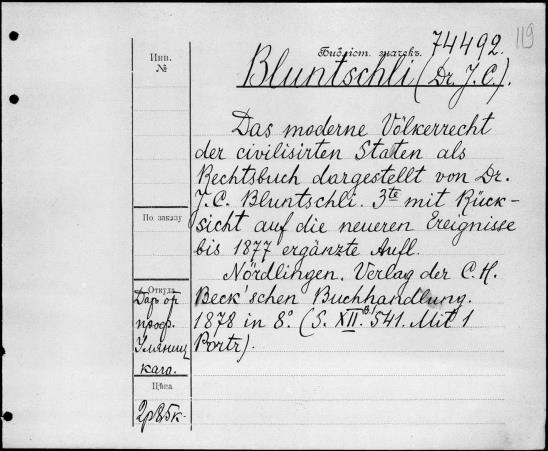 119
Библіот. значекъ. 74492.
Инв.
№
Bluntschli (Dr. J. C.).
Das moderne Völkerrecht
der civilisirten Statten als
Rechtsbuch dargestellt von Dr.
J. C. Bluntschli. 3te mit Rück-
sicht auf die neueren Ereignisse
bis 1877 ergänzte Aufl.
Nördlingen. Verlag der C. H.
Beck'schen Buchhandlung.
1878 in 8.° (S. XII. 541. Mit 1
Portr).
По заказу
Откуда
Даръ от
проф.
Уляниц
каго.
Цѣна